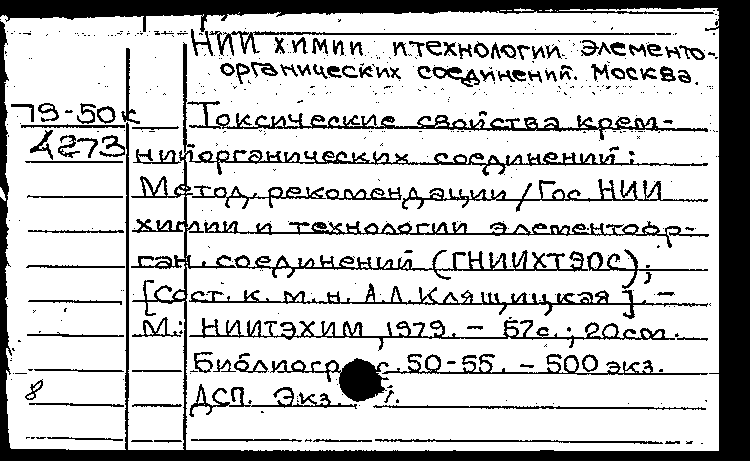 НИИ химии и технологии элементо-
органических соединений. Москва.
79-50к Токсические свойства крем-
4273 нийорганических соединений:
Метод. рекомендации / Гос. НИИ
химии и технологии элементоор-
ган. соединений (ГНИИХТЭОС);
[Сост. к. м. н. А.Л. Клящицкая]. –
М.: НИИТЭХИМ, 1979. – 57с.; 20см.
Библиогр. с. 50-55. – 500 экз.
8 ДСП. Экз.